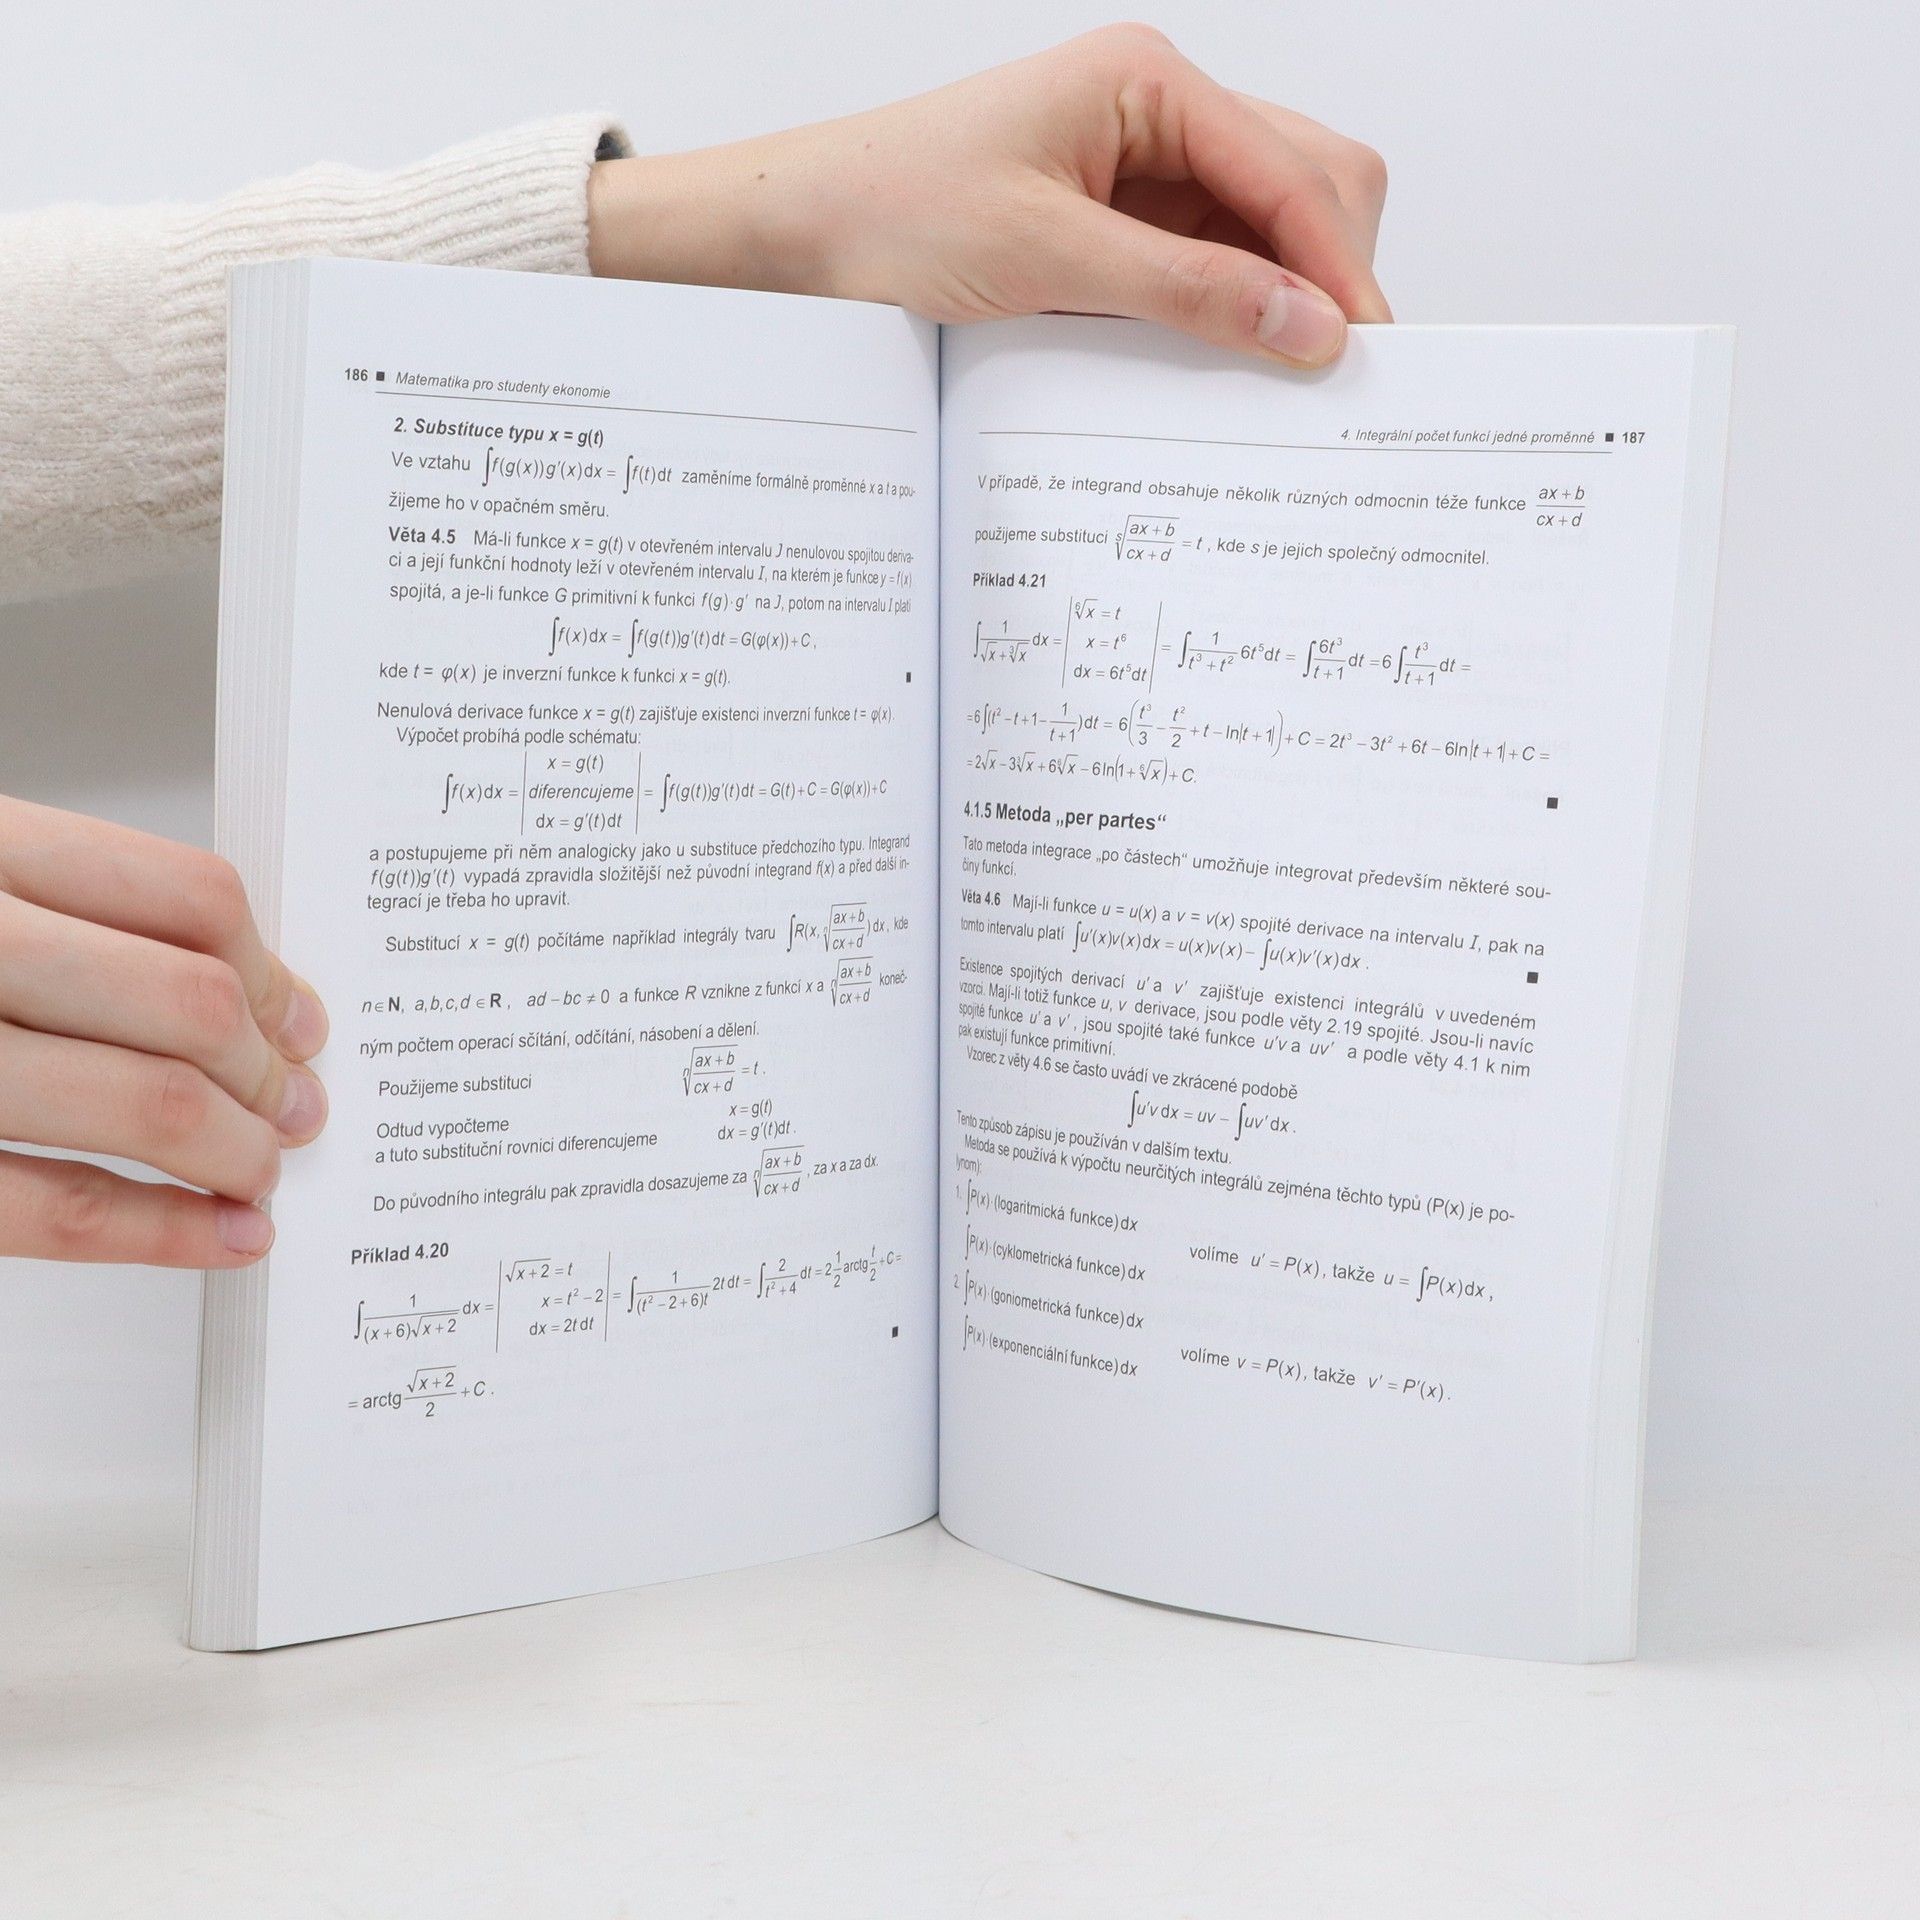 186 ■ Matematika pro studenty ekonomie
2. Substituce typu x = g(t)
Ve vztahu ∫f(g(x))g′(x)dx = ∫f(t)dt zaměníme formálně proměnné x a t a pou-
žijeme ho v opačném směru.
Věta 4.5 Má-li funkce x = g(t) v otevřeném intervalu J nenulovou spojitou deriva-
ci a její funkční hodnoty leží v otevřeném intervalu I, na kterém je funkce y = f(x)
spojitá, a je-li funkce G primitivní k funkci f(g)·g′ na J, potom na intervalu I platí
∫f(x)dx = ∫f(g(t))g′(t)dt = G(φ(x))+C,
kde t = φ(x) je inverzní funkce k funkci x = g(t). ■
Nenulová derivace funkce x = g(t) zajišťuje existenci inverzní funkce t = φ(x).
Výpočet probíhá podle schématu:
∫f(x)dx = | x = g(t) | diferencujeme | dx = g′(t)dt | = ∫f(g(t))g′(t)dt = G(t)+C = G(φ(x))+C
a postupujeme při něm analogicky jako u substituce předchozího typu. Integrand
f(g(t))g′(t) vypadá zpravidla složitější než původní integrand f(x) a před další in-
tegrací je třeba ho upravit.
Substitucí x = g(t) počítáme například integrály tvaru ∫R(x, ⁿ√((ax+b)/(cx+d)))dx, kde
n∈N, a,b,c,d∈R, ad−bc≠0 a funkce R vznikne z funkcí x a ⁿ√((ax+b)/(cx+d)) koneč-
ným počtem operací sčítání, odčítání, násobení a dělení.
Použijeme substituci ⁿ√((ax+b)/(cx+d)) = t.
Odtud vypočteme x = g(t)
a tuto substituční rovnici diferencujeme dx = g′(t)dt.
Do původního integrálu pak zpravidla dosazujeme za ⁿ√((ax+b)/(cx+d)), za x a za dx.
Příklad 4.20
∫1/((x+6)√(x+2)) dx = | √(x+2) = t | x = t²−2 | dx = 2t dt | = ∫1/((t²−2+6)t) 2t dt = ∫2/(t²+4) dt = 2 1/2 arctg t/2 +C =
= arctg √(x+2)/2 +C. ■
4. Integrální počet funkcí jedné proměnné ■ 187
V případě, že integrand obsahuje několik různých odmocnin téže funkce (ax+b)/(cx+d)
použijeme substituci ˢ√((ax+b)/(cx+d)) = t, kde s je jejich společný odmocnitel.
Příklad 4.21
∫1/(√x+∛x) dx = | ⁶√x = t | x = t⁶ | dx = 6t⁵dt | = ∫1/(t³+t²) 6t⁵dt = ∫6t³/(t+1) dt = 6∫t³/(t+1) dt =
=6∫(t²−t+1−1/(t+1))dt = 6(t³/3 − t²/2 + t − ln|t+1|)+C = 2t³ − 3t² + 6t − 6ln|t+1|+C =
= 2√x − 3∛x + 6⁶√x − 6ln(1+⁶√x)+C. ■
4.1.5 Metoda „per partes“
Tato metoda integrace „po částech“ umožňuje integrovat především některé sou-
činy funkcí.
Věta 4.6 Mají-li funkce u = u(x) a v = v(x) spojité derivace na intervalu I, pak na
tomto intervalu platí ∫u′(x)v(x)dx = u(x)v(x)− ∫u(x)v′(x)dx. ■
Existence spojitých derivací u′ a v′ zajišťuje existenci integrálů v uvedeném
vzorci. Mají-li totiž funkce u, v derivace, jsou podle věty 2.19 spojité. Jsou-li navíc
spojité funkce u′ a v′, jsou spojité také funkce u′v a uv′ a podle věty 4.1 k nim
pak existují funkce primitivní.
Vzorec z věty 4.6 se často uvádí ve zkrácené podobě
∫u′v dx = uv − ∫uv′dx.
Tento způsob zápisu je používán v dalším textu.
Metoda se používá k výpočtu neurčitých integrálů zejména těchto typů (P(x) je po-
lynom):
1. ∫P(x)·(logaritmická funkce)dx
∫P(x)·(cyklometrická funkce)dx volíme u′ = P(x), takže u = ∫P(x)dx,
2. ∫P(x)·(goniometrická funkce)dx
∫P(x)·(exponenciální funkce)dx volíme v = P(x), takže v′ = P′(x).